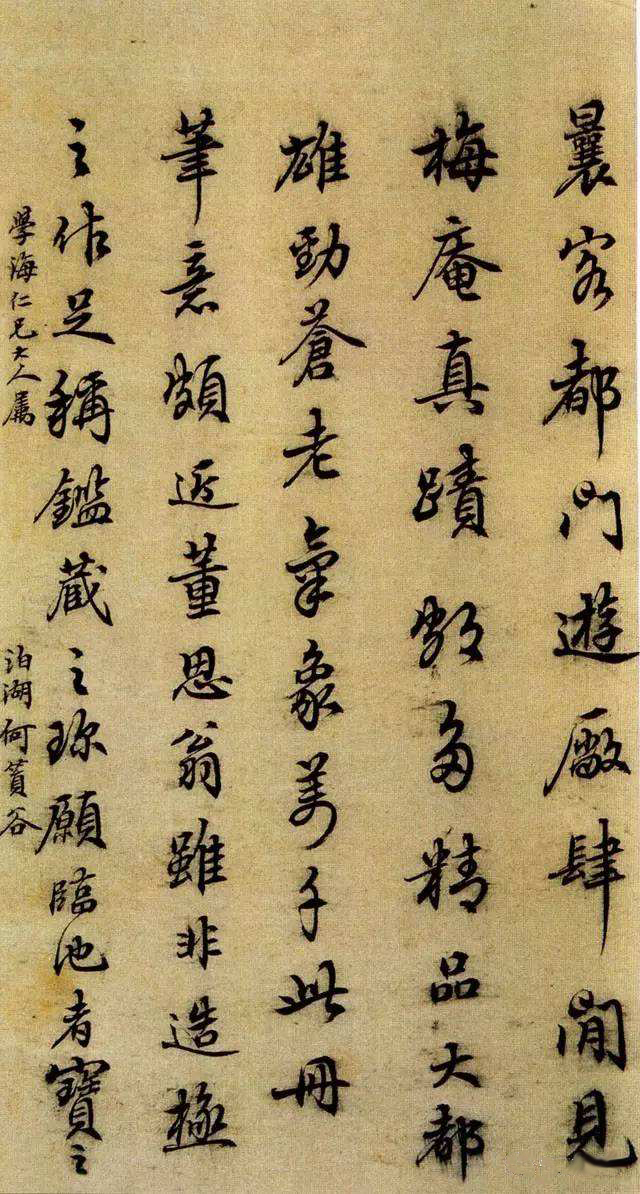 曩客都門遊廠肆閒見
梅庵真蹟數多精品大都
雄勁蒼老氣象萬千此冊
筆意頗近董思翁雖非造極
之作足稱鑑藏之珍願臨池者寶之
學海仁兄大人屬
泊湖何篔谷